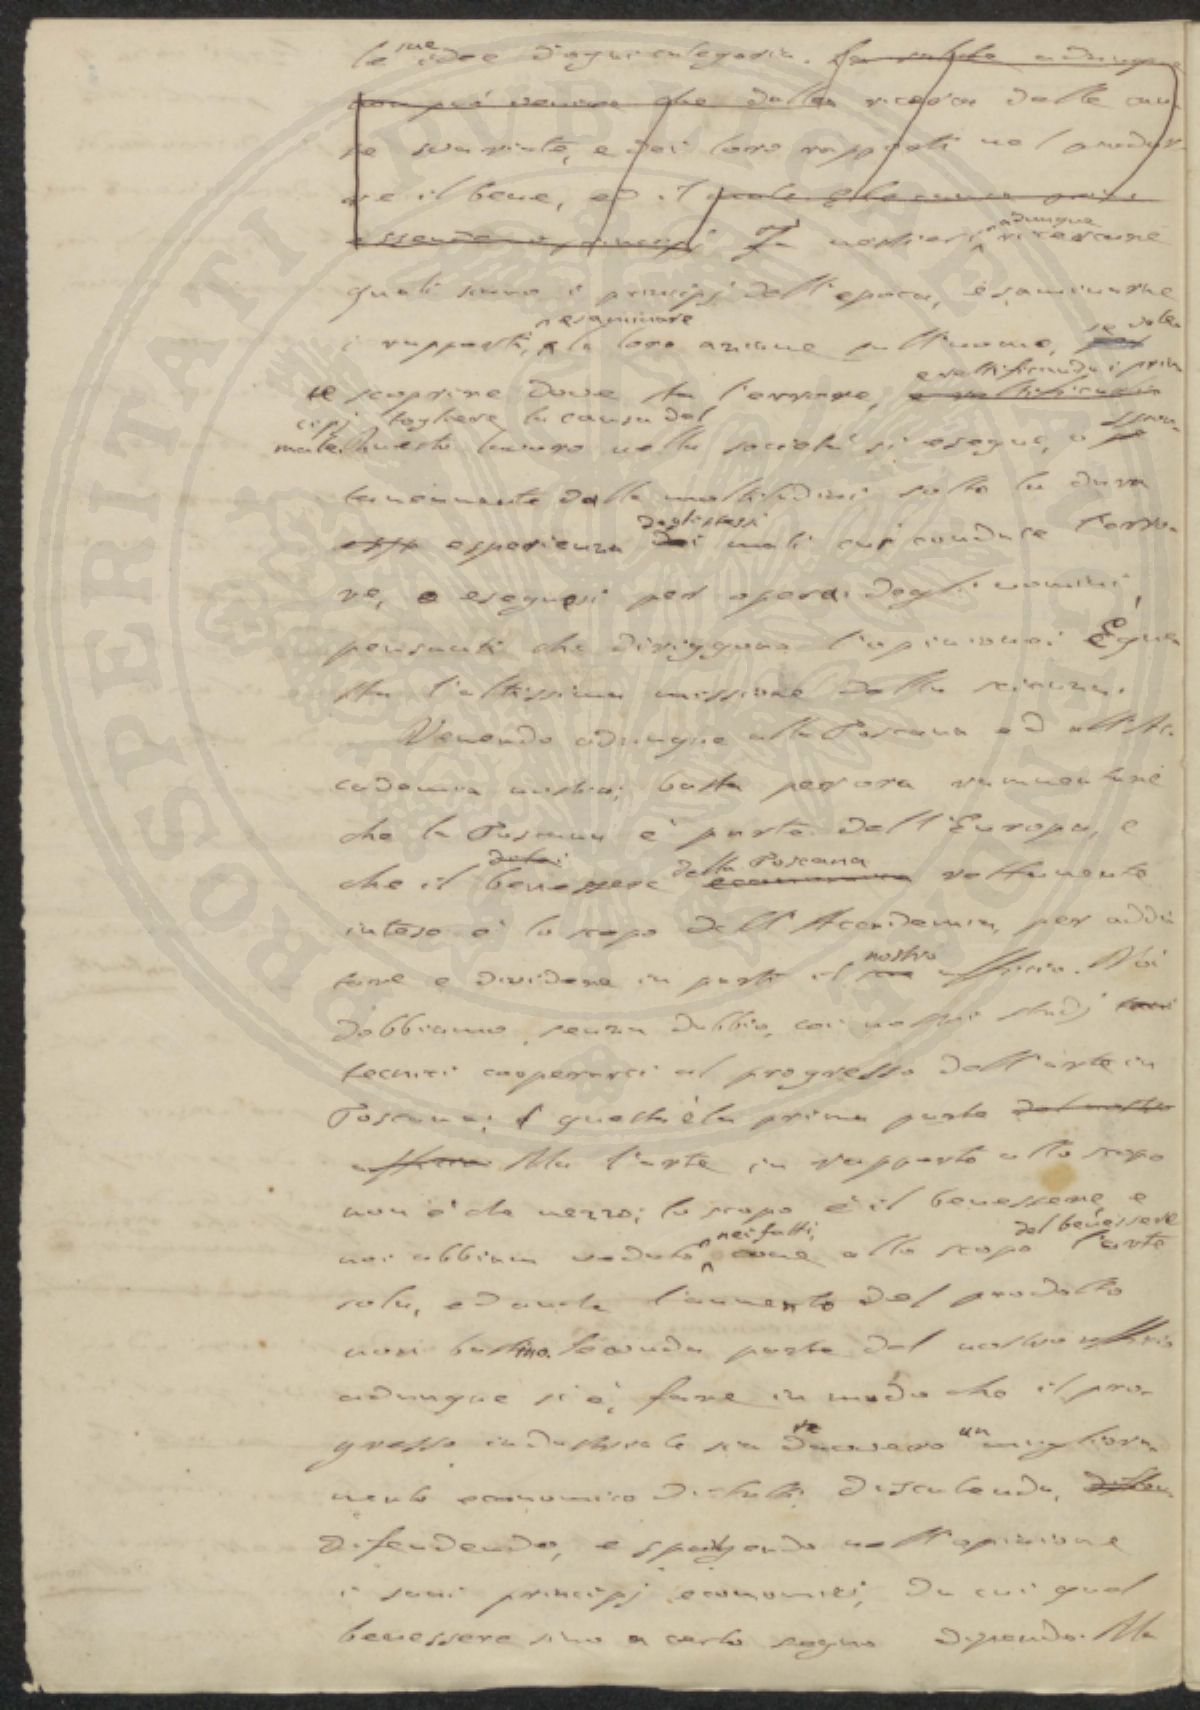 le sue idee d'ogni categoria. La salute adunque
non può venire che dalla ricerca delle cau-
se svariate, e dei loro rapporti nel produr-
re il bene, ed il male, e le cause prime
essendo i principj È mestieri adunque ricercare
quali siano i principj dell'epoca, esaminarne
i rapporti, esaminare la loro azione sull'uomo, se voles-
se scoprire dove sta l'errore, e rettificando i prin
cipj togliere la causa del
male. Questo lavoro nella società si esegue, o spon-
taneamente dalle moltitudini sotto la dura
esperienza degli stessi mali cui conduce l'erro-
re, o eseguesi per opera degli uomini
pensanti che diriggono l'opinione. È que
sta l'altissima missione della scienza.
Venendo adunque alla Toscana ed all'Ac-
cademia nostra; basta per ora rammentare
che la Toscana è parte dell'Europa, e
che il benessere della Toscana rettamente
inteso è lo scopo dell'Accademia, per addi
tare e dividere in parti il nostro ufficio. Noi
dobbiamo senza dubbio, coi nostri studj
tecnici cooperarci al progresso dell'arte in
Toscana; e questa è la prima parte del nostro
ufficio. Ma l'arte in rapporto allo scopo
non è che mezzo; lo scopo è il benessere, e
noi abbiam veduto nei fatti, come allo scopo del benessere l'arte
sola, ed anche l'aumento del prodotto
non bastino. Seconda parte del nostro ufficio
adunque si è, fare in modo che il pro-
gresso industriale sia davvero un migliora-
mento economico di tutti discutendo,
difendendo, e spargendo nell'opinione
i sani principj economici, da cui quel
benessere sino a certo segno dipende. Ma